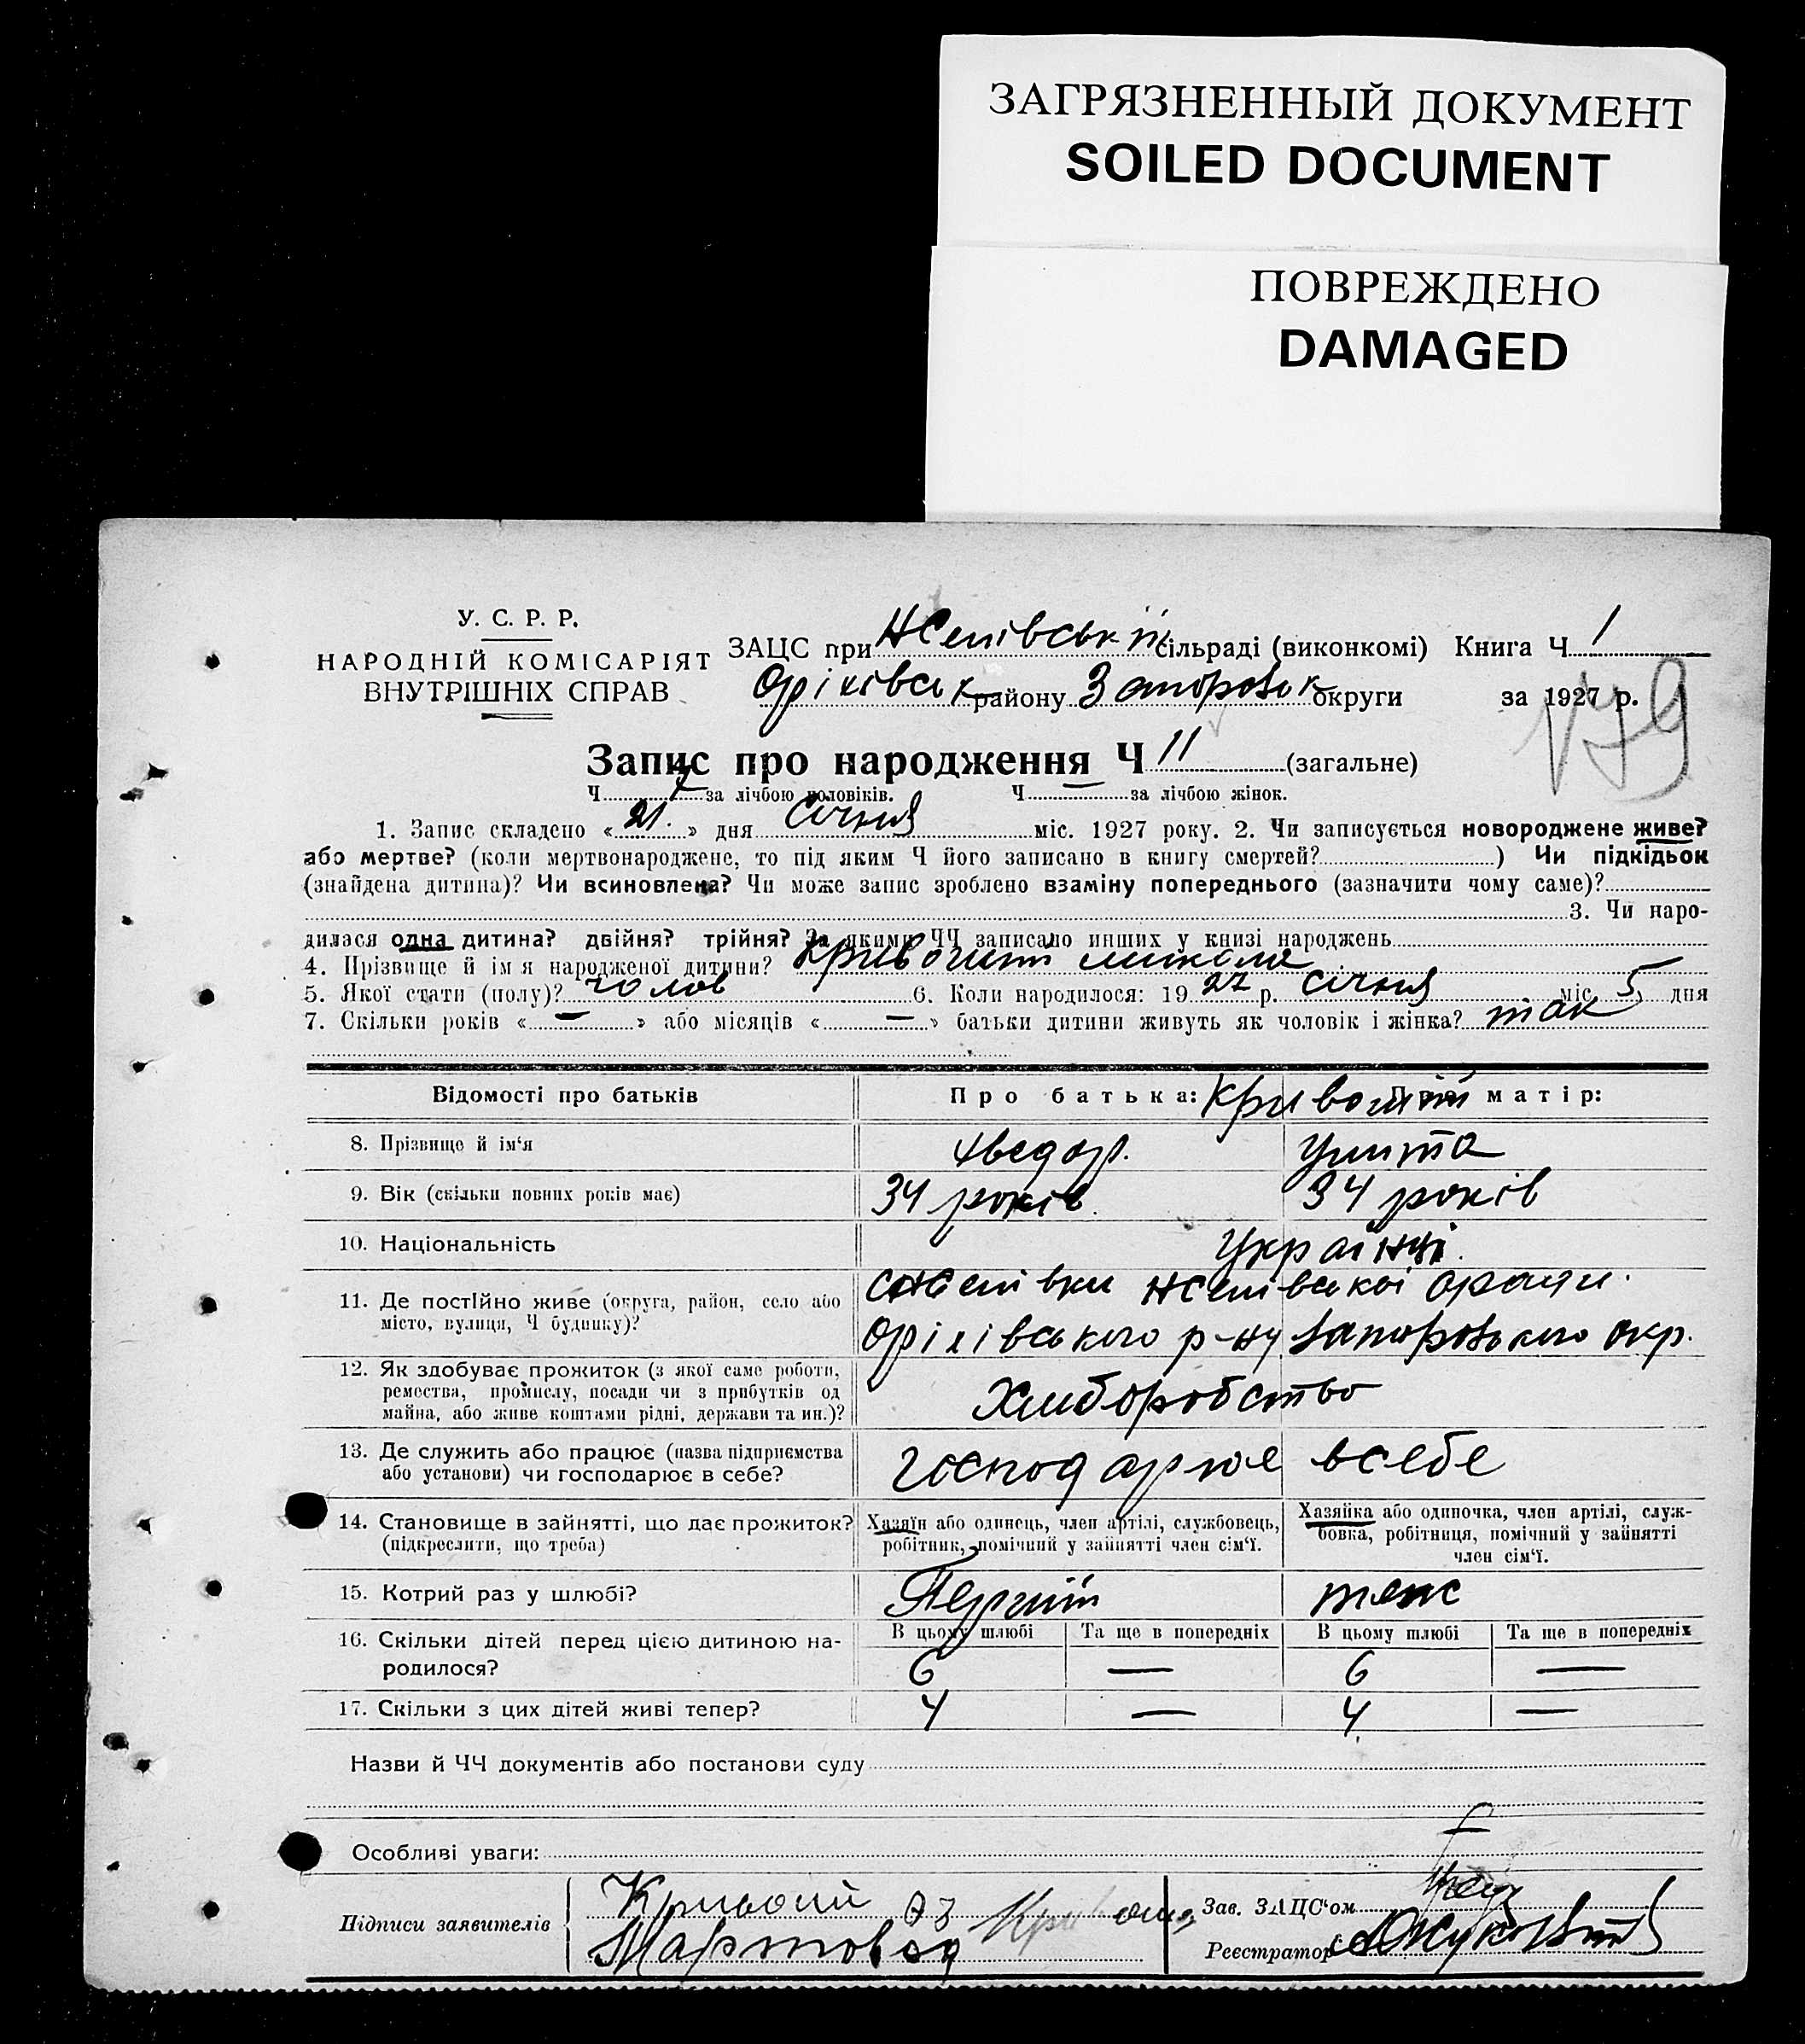 ЗАГРЯЗНЕННЫЙ ДОКУМЕНТ
SOILED DOCUMENT
ПОВРЕЖДЕНО
DAMAGED
У. С. Р. Р.
НАРОДНІЙ КОМІСАРІЯТ
ВНУТРІШНІХ СПРАВ
ЗАЦС при сільраді (виконкомі) Книга Ч 1
Оріхівськ району Запорозьк округи за 1927 р.
179
Запис про народження Ч 11 (загальне)
Ч 7 за лічбою чоловіків. Ч — за лічбою жінок.
1. Запис складено « 21. » дня Січня міс. 1927 року. 2. Чи записується новороджене живе?
або мертве? (коли мертвонароджене, то під яким Ч його записано в книгу смертей? ) Чи підкідьок
(знайдена дитина)? Чи всиновлена? Чи може запис зроблено взаміну попереднього (зазначити чому саме)?
3. Чи наро-
дилася одна дитина? двійня? трійня? За якими ЧЧ записано инших у книзі народжень
4. Прізвище й ім'я народженої дитини? Микола
5. Якої стати (полу)? чолов 6. Коли народилося: 19 27 р. Січня міс. 5 дня
7. Скільки років « — » або місяців « — » батьки дитини живуть як чоловік і жінка? так
Відомості про батьків Про батька: Про матір:
8. Прізвище й ім'я Хведор.
9. Вік (скільки повних років має) 34 років. 34 років
10. Національність Українці.
11. Де постійно живе (округа, район, село або
місто, вулиця, Ч будинку)?
Оріхівського р-ну Запорозького окр.
12. Як здобуває прожиток (з якої саме роботи,
ремества, промислу, посади чи з прибутків од
майна, або живе коштами рідні, держави та ин.)? Хліборобство
13. Де служить або працює (назва підприємства
або установи) чи господарює в себе? господарює в себе
14. Становище в зайнятті, що дає прожиток?
(підкреслити, що треба)
Хазяїн або одинець, член артілі, службовець,
робітник, помічний у зайнятті член сім'ї.
Хазяйка або одиночка, член артілі, служ-
бовка, робітниця, помічний у зайнятті
член сім'ї.
15. Котрий раз у шлюбі? Перший теж
16. Скільки дітей перед цією дитиною на-
родилося?
В цьому шлюбі Та ще в попередніх В цьому шлюбі Та ще в попередніх
6 — 6 —
17. Скільки з цих дітей живі тепер? 4 — 4 —
Назви й ЧЧ документів або постанови суду
Особливі уваги:
Підписи заявителів
Зав. ЗАЦС'ом
Реєстратор